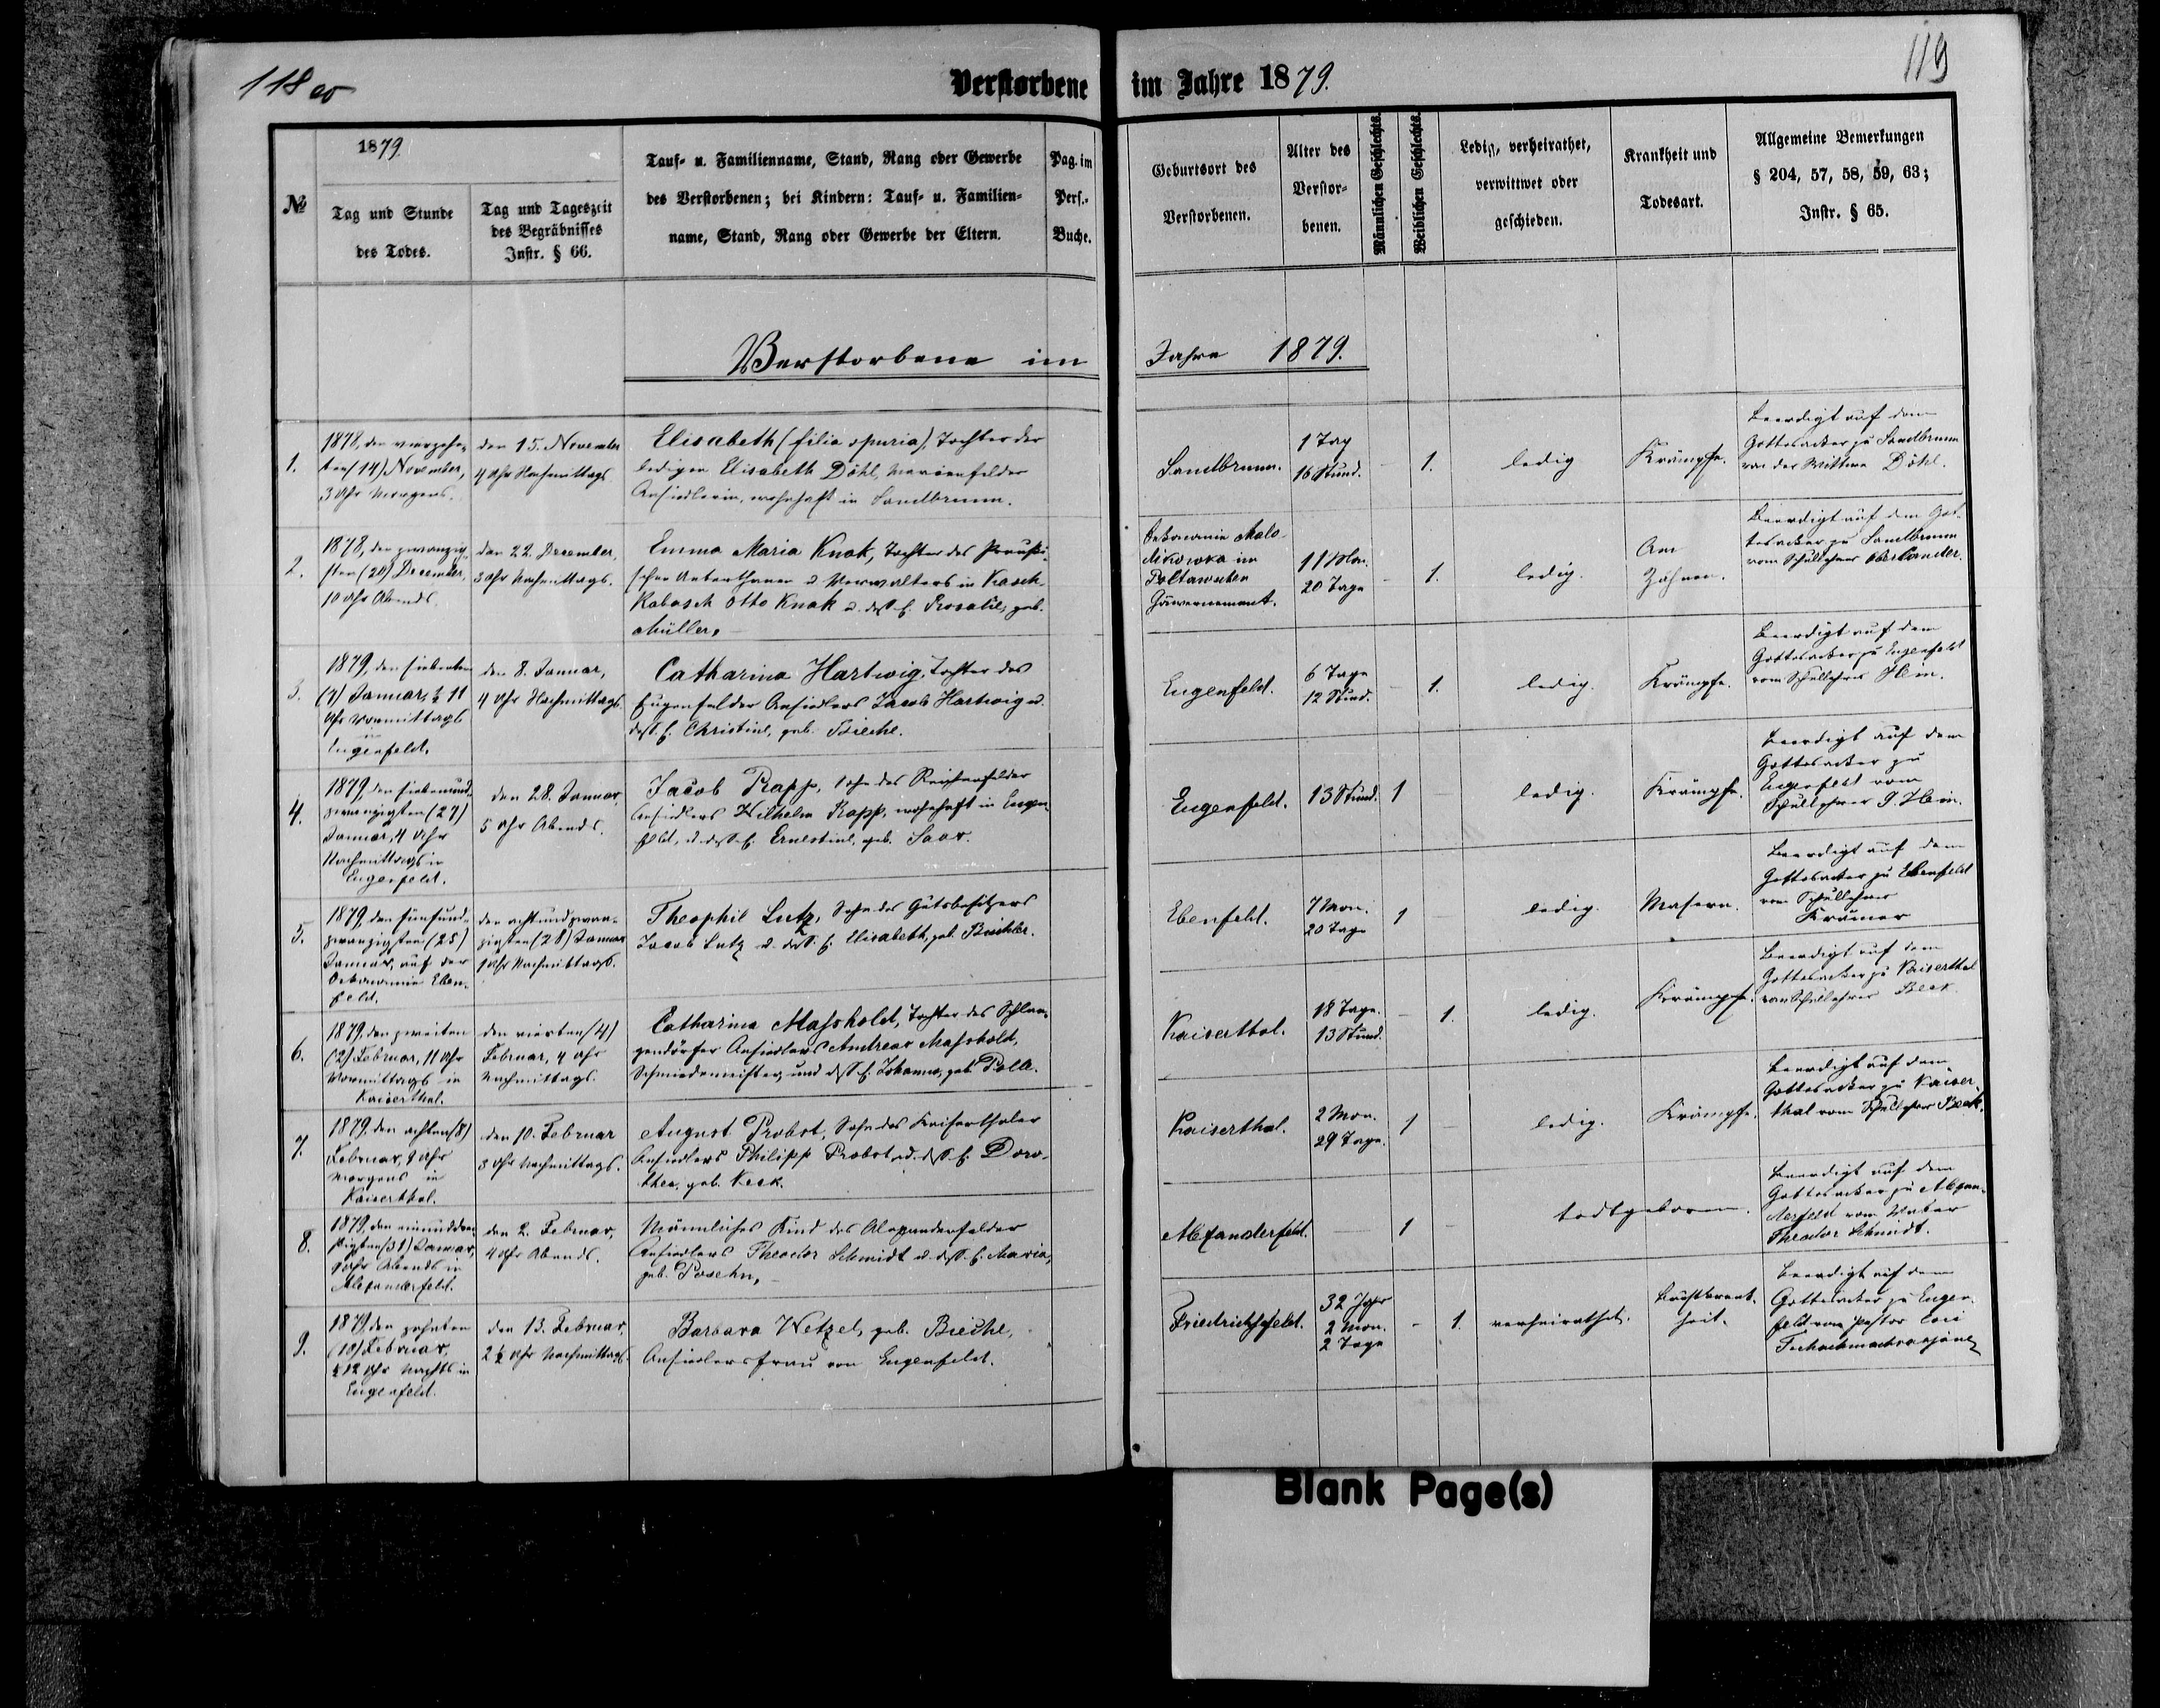 118
Verstorbene im Jahre 1879.
119
№
1879
Tag und Stunde
des Todes.
Tag und Tageszeit
des Begräbnisses
Instr. § 66.
Tauf- u. Familienname, Stand, Rang oder Gewerbe
des Verstorbenen; bei Kindern: Tauf- u. Familien-
name, Stand, Rang oder Gewerbe der Eltern.
Pag. im
Pers.-
Buche.
Geburtsort des
Verstorbenen.
Alter des
Verstor-
benen.
Männlichen Geschlechts.
Weiblichen Geschlechts.
Ledig, verheirathet,
verwittwet oder
geschieden.
Krankheit und
Todesart.
Allgemeine Bemerkungen
§ 204, 57, 58, 59, 63;
Instr. § 65.
Verstorbene im Jahre 1879.
1.
1878, den vierzehn-
ten (14) November,
3 Uhr Morgens.
den 15. November
4 Uhr Nachmittags
Elisabeth (filia spuria), Tochter der
ledigen Elisabeth Döhl, Marienfelder
Ansiedlerin, wohnhaft in Sandbrunn.
Sandbrunn.
1 Tag
16 Stund.
-
1.
ledig
Krämpfe.
Beerdigt auf dem
Gottesacker zu Sandbrunn
von der Wittwe Döhl.
2.
1878, den zwanzig-
sten (20) December,
10 Uhr Abends.
den 22. December,
3 Uhr Nachmittags.
Emma Maria Knak, Tochter des Preußi-
schen Unterthanen u. Verwalters in Kasch-
Kabasch Otto Knak u. dess. E. Rosalie, geb.
Müller.
Oekonomie Malo-
im
Poltawschen
Gouvernement.
11 Mon.
20 Tage
-
1.
ledig.
Am
Zahnen.
Beerdigt auf dem Got-
tesacker zu Sandbrunn
vom Schullehrer Oberlander.
3.
1879, den siebenten
(7) Januar, ½ 11
Uhr Vormittags
in
Eugenfeld.
den 8. Januar,
4 Uhr Nachmittags.
Catharina Hartwig, Tochter des
Eugenfelder Ansiedlers Jacob Hartwig u.
dess. E. Christine, geb. Biechl.
Eugenfeld.
6 Tage
12 Stund.
-
1.
ledig.
Krämpfe.
Beerdigt auf dem
Gottesacker zu Eugenfeld
vom Schullehrer Hein.
4.
1879, den siebenund-
zwanzigsten (27)
Januar, 4 Uhr
Nachmittags in
Eugenfeld.
den 28. Januar,
5 Uhr Abends.
Jacob Rapp, Sohn des Reichenfelder
Ansiedlers Wilhelm Rapp, wohnhaft in Eugen-
feld, u. dess. E. Ernestine, geb. Saar.
Eugenfeld.
13 Stund.
1
-
ledig.
Krämpfe.
Beerdigt auf dem
Gottesacker zu
Eugenfeld vom
Schullehrer J. Hein.
5.
1879, den fünfund-
zwanzigsten (25)
Januar, auf der
Oekonomie Eben-
feld.
den achtundzwan-
zigsten (28) Januar
1 Uhr Nachmittags.
Theophil Lutz, Sohn des Gutsbesitzers
Jacob Lutz u. dess. E. Elisabeth, geb.
Ebenfeld.
7 Mon.
20 Tage
1
ledig.
Masern.
Beerdigt auf dem
Gottesacker zu Ebenfeld
vom Schullehrer
Krämer
6.
1879, den zweiten
(2) Februar, 11 Uhr
Vormittags in
Kaiserthal.
den vierten (4)
Februar, 4 Uhr
Nachmittags.
Catharina Massholdt, Tochter des Schlan-
gendörfer Ansiedlers Andreas Massholdt,
Schmiedemeister, und dess. E. Johanna, geb. Polle.
Kaiserthal.
18 Tage.
13 Stund.
-
1.
ledig.
Krämpfe.
Beerdigt auf dem
Gottesacker zu Kaiserthal
vom Schullehrer Beck.
7.
1879, den achten (8)
Februar, Uhr
Morgens in
Kaiserthal.
den 10. Februar
3 Uhr Nachmittags.
August Probst, Sohn des Kaiserthaler
Ansiedlers Philipp Probst u. dess. E. Doro-
thea, geb. Keck.
Kaiserthal.
2 Mon.
29 Tage.
1
-
ledig.
Krämpfe.
Beerdigt auf dem
Gottesacker zu Kaiser-
thal vom Schullehrer Beck.
8.
1879, den einunddrei-
ßigsten (31) Januar,
Uhr Abends in
Alexanderfeld.
den 2. Februar,
4 Uhr Abends.
Männliches Kind des Alexanderfelder
Ansiedlers Theodor Schmidt u. dess. E. Maria,
geb. Posehn.
Alexanderfeld.
-
1
-
todtgeboren.
Beerdigt auf dem
Gottesacker zu Alexan-
derfeld vom Vater
Theodor Schmidt.
9.
1879, den zehnten
(10) Februar,
½ 12 Uhr Nachts in
Eugenfeld.
den 13. Februar,
2½ Uhr Nachmittags.
Barbara Wetzel, geb. Biechl,
Ansiedlersfrau von Eugenfeld.
Friedrichsfeld.
32 Jahr
2 Mon.
2 Tage
-
1.
verheirathet.
Brustkrank-
heit.
Beerdigt auf dem
Gottesacker zu Eugen-
feld vom Pastor
Blank Page(s)